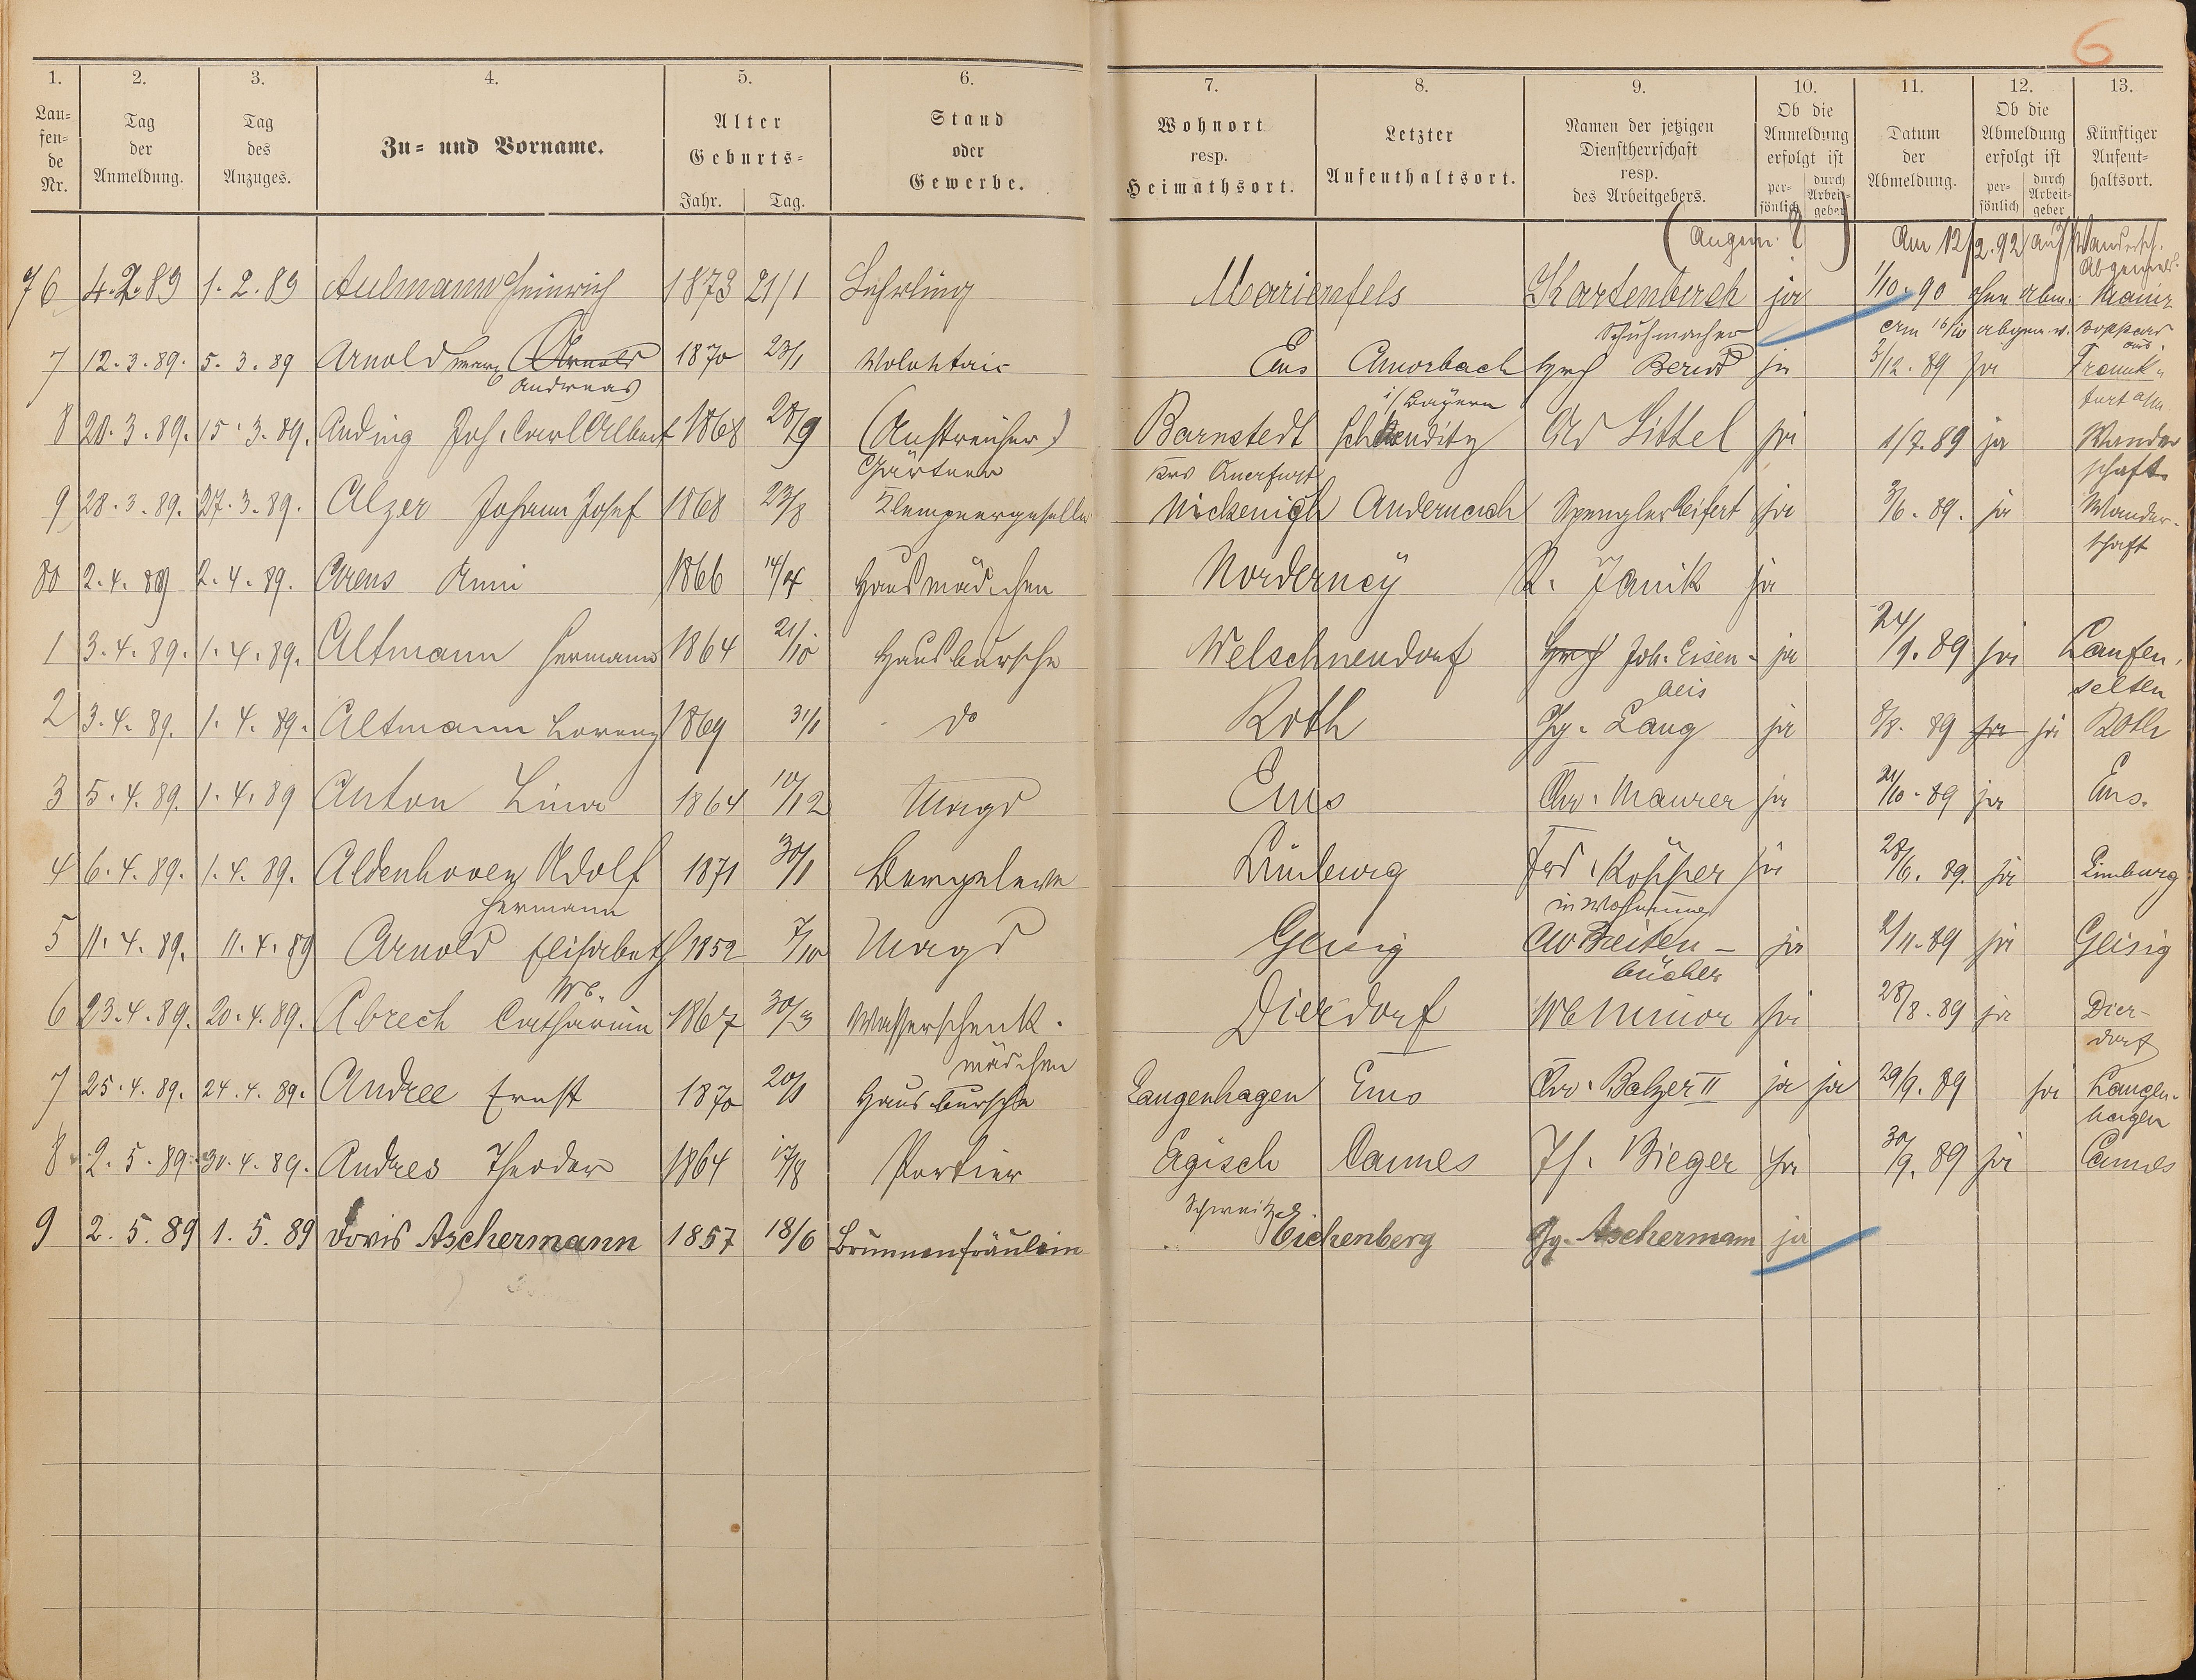 6
1. 2. 3. 4. 5. 6. 7. 8. 9. 10. 11. 12. 13.
Lau=fen=de Nr. Tag der Anmeldung. Tag des Anzuges. Zu= und Vorname. Alter Geburts= Jahr. Tag. Stand oder Gewerbe. Wohnort resp. Heimathsort. Letzter Aufenthaltsort. Namen der jetzigen Dienstherrschaft resp. des Arbeitgebers. Ob die Anmeldung erfolgt ist per=sönlich durch Arbeit=geber Datum der Abmeldung. Ob die Abmeldung erfolgt ist per=sönlich durch Arbeit=geber Künftiger Aufent=haltsort.
Am 12/2. 92 auf Wandersch.
76 4. 2. 89 1. 2. 89 Aulmann Heinrich 1873 21/1 Lehrling Marienfels ja 1/10. 90 Mainz
Schuhmacher
7 12. 3. 89. 5. 3. 89 Arnold 1870 23/1 Volontair Ems Amorbach ja 3/12. 89 ja Frank=
Andreas i/ Bayern furt a/M.
8 20. 3. 89. 15. 3. 89. Anding Joh. Carl Albert 1868 28/9 (Anstreicher) Barnstedt Ad Littel ja 1/7. 89 ja Wander
Gärtner Krs Querfurt schaft
9 28. 3. 89. 27. 3. 89. Alzer Johann Josef 1868 23/8 Klempnergeselle Nickenigh Andernach Spengler Seifert ja 3/6. 89. ja Wander=
schaft
80 2. 4. 89 2. 4. 89. Arens Anni 1866 14/4 Hausmädchen Norderney R. Janik ja
1 3. 4. 89. 1. 4. 89. Altmann Hermann 1864 21/10 Hausbursche Welschneudorf Joh. Eisen= ja 24/9. 89 ja Laufen=
beis selten
2 3. 4. 89. 1. 4. 89. Altmann Lorenz 1869 31/1 do Roth Gg. Lang ja 8/8. 89 ja ja Roth
3 5. 4. 89. 1. 4. 89 Anton Lina 1864 10/12 Magd Ems Chr. Maurer ja 21/10. 89 ja Ems.
4 6. 4. 89. 1. 4. 89. Aldenhoven Adolf 1871 30/1 Bergeleve Limburg Frd. Köpper ja 28/6. 89. ja Limburg
Hermann in Wohnung
5 11. 4. 89. 11. 4. 89 Arnold Elisabeth 1852 7/10 Magd Geisig Breiten= ja 2/11. 89 ja Geisig
bücher
We.
6 23. 4. 89. 20. 4. 89. Abrech Catharina 1867 30/3 Wasserschenk. Dierdorf We Minor ja 28/8. 89 ja Dier=
mädchen dorf
7 25. 4. 89. 24. 4. 89. Andree Ernst 1870 20/1 Hausbursche Langenhagen Ems Chr. Balzer II ja ja 29/9. 89 ja Langen=
hagen
8 2. 5. 89. 30. 4. 89. Andres Theodor 1864 17/8 Portier Ergisch Cannes Jh. Bieger ja 30/9. 89 ja Cannes
Schweitz
9 2. 5. 89 1. 5. 89 Doris Aschermann 1857 18/6 Brunnenfräulein Eichenberg Gg. Aschermann ja